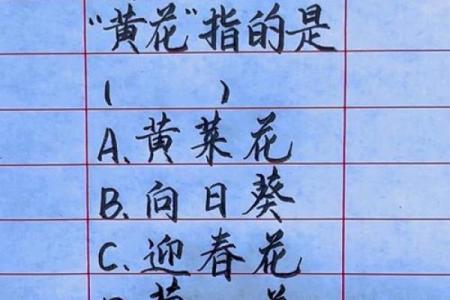 “黄花”指的是
(      )
A、黄菜花
B、向日葵
C、迎春花